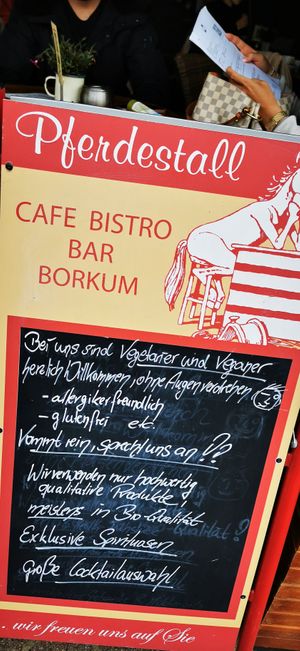 Pferdestall
CAFE BISTRO
BAR
BORKUM
Bei uns sind Vegetarier und Veganer
herzlich Willkommen, ohne Augenverdrehen
- allergikerfreundlich
- glutenfrei etc.
Kommt rein, sprecht uns an!
Wir verwenden nur hochwertig
qualitative Produkte,
meistens in Bio-Qualität
Exklusive Spirituosen
große Cocktailauswahl
. wir freuen uns auf Sie